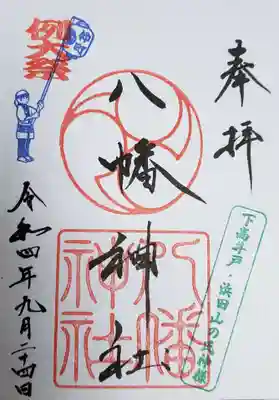 奉拝
八幡神社
下高井戸・浜田山の氏神様
例大祭
八幡神社
令和四年九月二十四日